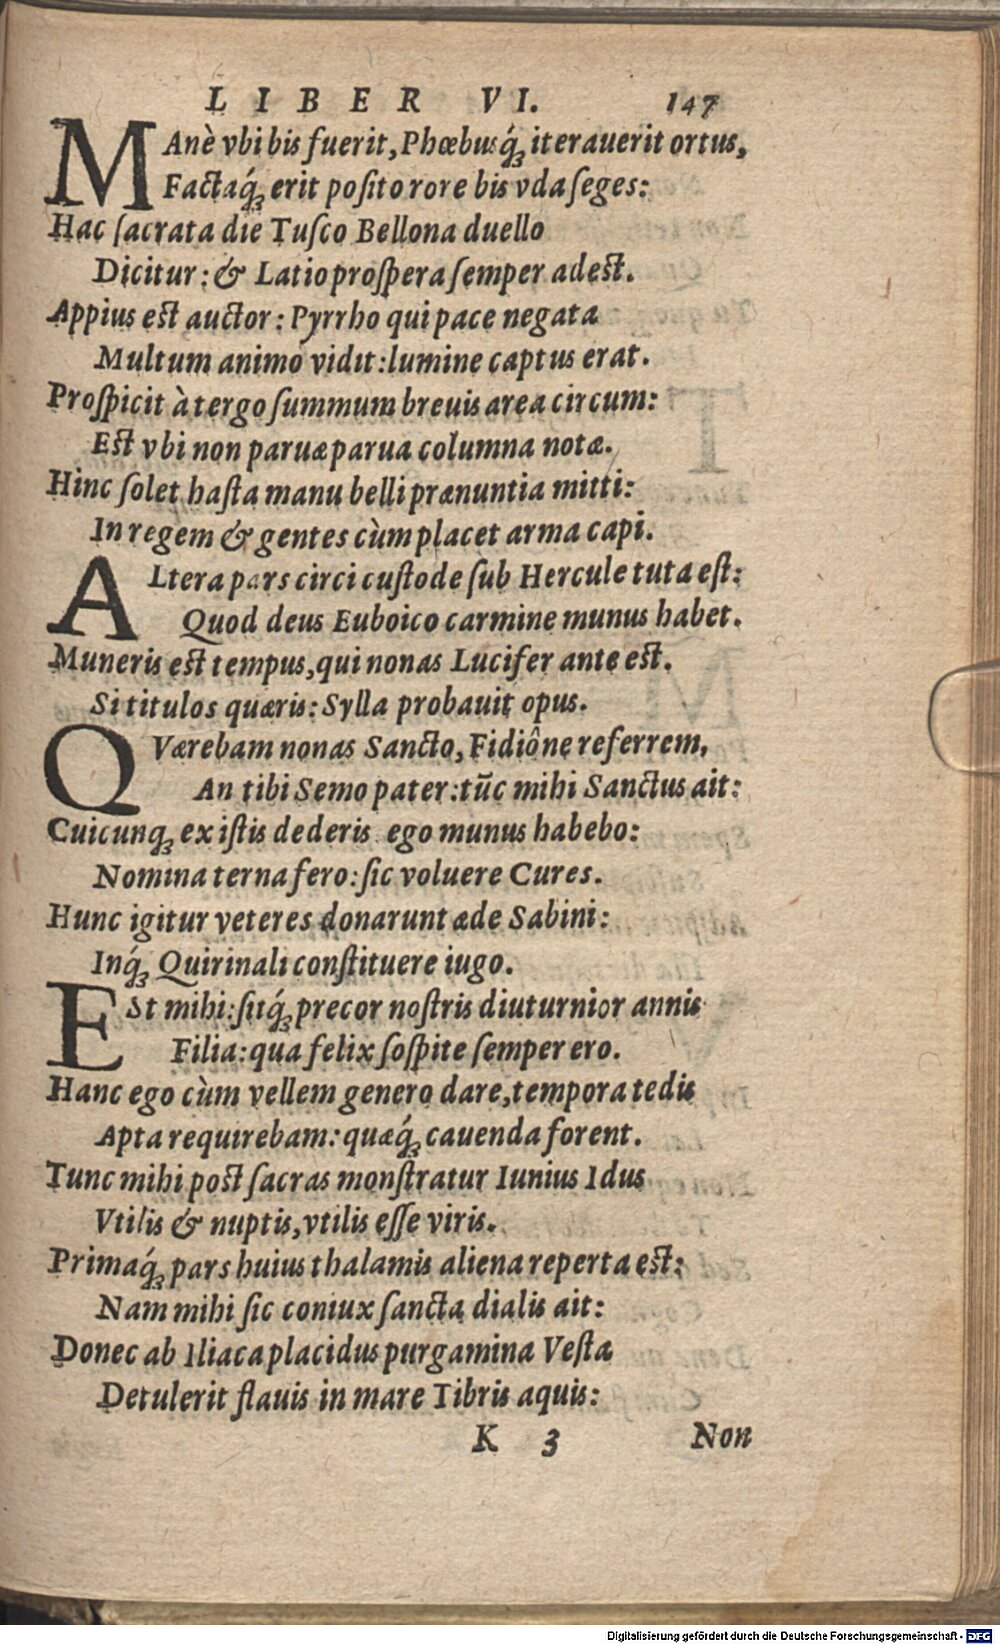 LIBER VI. 147
MAnè vbi bis fuerit, Phœbusq́ꝫ iterauerit ortus,
Factaq́ꝫ erit posito rore bis vda seges:
Hac sacrata die Tusco Bellona duello
Dicitur: & Latio prospera semper adest.
Appius est auctor: Pyrrho qui pace negata
Multum animo vidit: lumine captus erat.
Prospicit à tergo summum breuis area circum:
Est vbi non paruæ parua columna notæ.
Hinc solet hasta manu belli prænuntia mitti:
In regem & gentes cùm placet arma capi.
ALtera pars circi custode sub Hercule tuta est:
Quod deus Euboico carmine munus habet.
Muneris est tempus, qui nonas Lucifer ante est.
Si titulos quæris: Sylla probauit opus.
QVærebam nonas Sancto, Fidiône referrem,
An tibi Semo pater: tũc mihi Sanctus ait:
Cuicunqꝫ ex istis dederis ego munus habebo:
Nomina terna fero: sic voluere Cures.
Hunc igitur veteres donarunt æde Sabini:
Inq́ꝫ Quirinali constituere iugo.
ESt mihi: sitq́ꝫ precor nostris diuturnior annis
Filia: qua felix sospite semper ero.
Hanc ego cùm vellem genero dare, tempora tedis
Apta requirebam: quæq́ꝫ cauenda forent.
Tunc mihi post sacras monstratur Iunius Idus
Vtilis & nuptis, vtilis esse viris.
Primaq́ꝫ pars huius thalamis aliena reperta est:
Nam mihi sic coniux sancta dialis ait:
Donec ab Iliaca placidus purgamina Vesta
Detulerit flauis in mare Tibris aquis:
K 3 Non
Digitalisierung gefördert durch die Deutsche Forschungsgemeinschaft - DFG